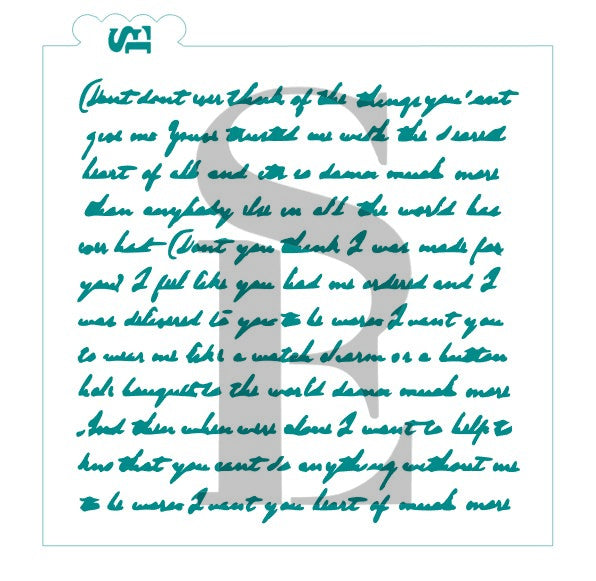 SE
(Dont dont ever think of the things you 'ent
give me Youve trusted me with the dearest
heart of all and its so damn much more
than anybody else in all the world has
ever had - (Dont you think I was made for
you? I feel like you had me ordered and I
was delivered to you to be worn I want you
to wear me like a watch charm or a button
hole bouquet to the world damn much more
And then when were alone I want to help to
kno that you cant do anything without me
to be worn I want you heart of much more
SE